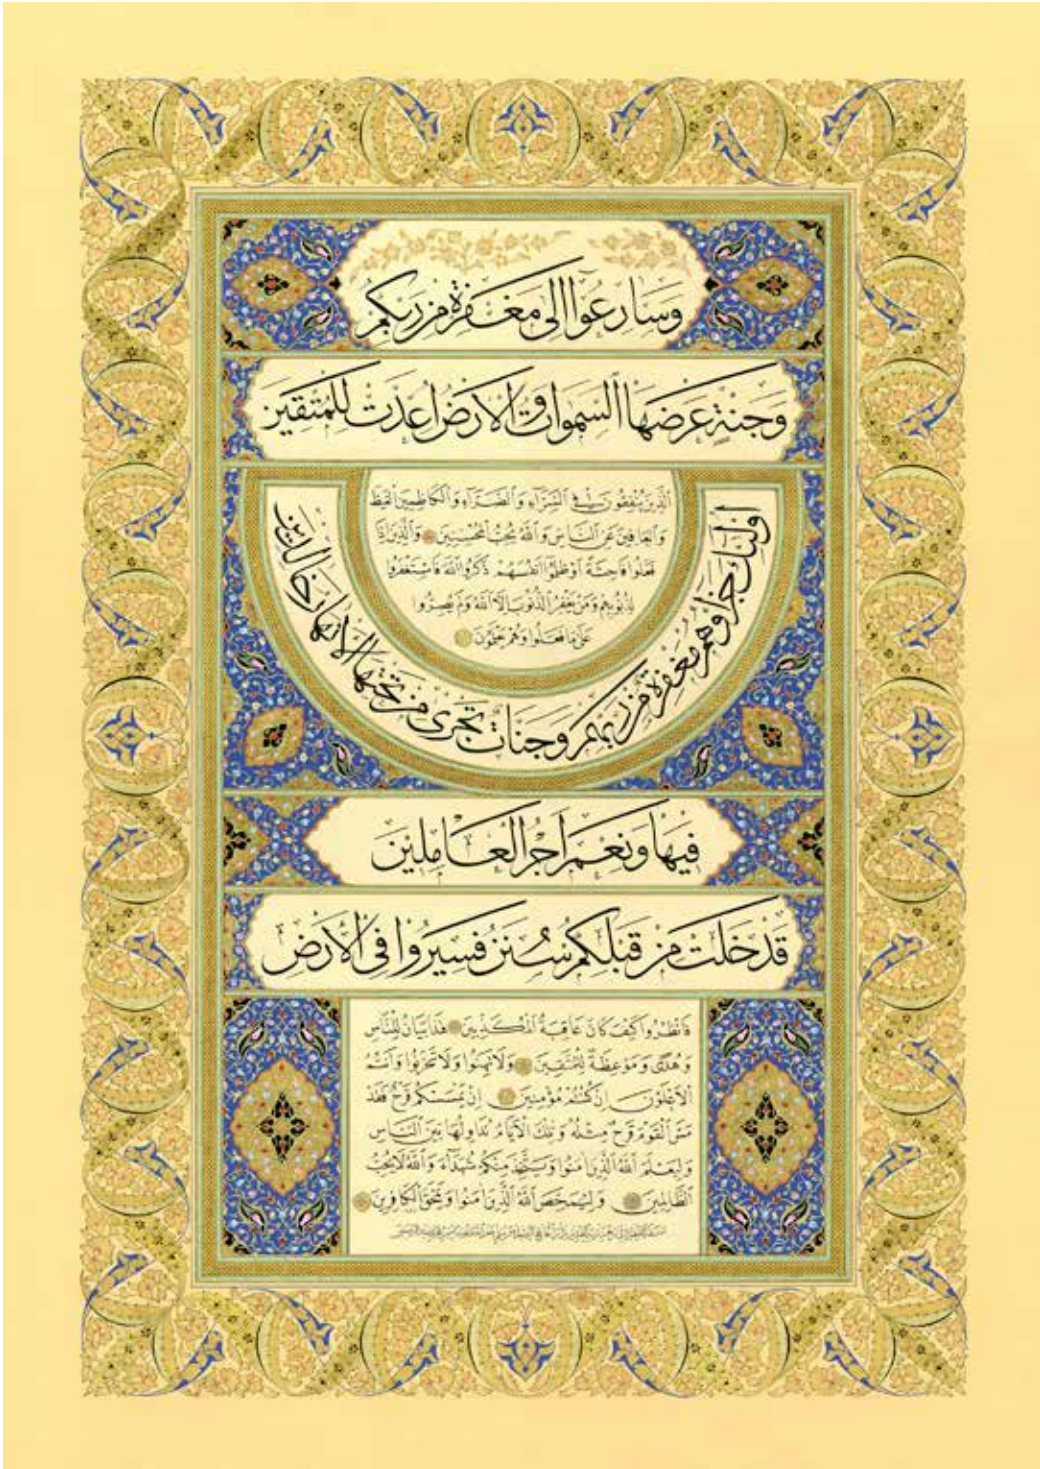 وَسَارِعُوا إِلَى مَغْفِرَةٍ مِنْ رَبِّكُمْ
وَجَنَّةٍ عَرْضُهَا السَّمَوَاتُ وَالْأَرْضُ أُعِدَّتْ لِلْمُتَّقِينَ
الَّذِينَ يُنْفِقُونَ فِي السَّرَّاءِ وَالضَّرَّاءِ وَالْكَاظِمِينَ الْغَيْظَ
وَالْعَافِينَ عَنِ النَّاسِ وَاللَّهُ يُحِبُّ الْمُحْسِنِينَ وَالَّذِينَ إِذَا
فَعَلُوا فَاحِشَةً أَوْ ظَلَمُوا أَنْفُسَهُمْ ذَكَرُوا اللَّهَ فَاسْتَغْفَرُوا
لِذُنُوبِهِمْ وَمَنْ يَغْفِرُ الذُّنُوبَ إِلَّا اللَّهُ وَلَمْ يُصِرُّوا
عَلَى مَا فَعَلُوا وَهُمْ يَعْلَمُونَ
أُولَئِكَ جَزَاؤُهُمْ مَغْفِرَةٌ مِنْ رَبِّهِمْ وَجَنَّاتٌ تَجْرِي مِنْ تَحْتِهَا الْأَنْهَارُ خَالِدِينَ
فِيهَا وَنِعْمَ أَجْرُ الْعَامِلِينَ
قَدْ خَلَتْ مِنْ قَبْلِكُمْ سُنَنٌ فَسِيرُوا فِي الْأَرْضِ
فَانْظُرُوا كَيْفَ كَانَ عَاقِبَةُ الْمُكَذِّبِينَ هَذَا بَيَانٌ لِلنَّاسِ
وَهُدًى وَمَوْعِظَةٌ لِلْمُتَّقِينَ وَلَا تَهِنُوا وَلَا تَحْزَنُوا وَأَنْتُمُ
الْأَعْلَوْنَ إِنْ كُنْتُمْ مُؤْمِنِينَ إِنْ يَمْسَسْكُمْ قَرْحٌ فَقَدْ
مَسَّ الْقَوْمَ قَرْحٌ مِثْلُهُ وَتِلْكَ الْأَيَّامُ نُدَاوِلُهَا بَيْنَ النَّاسِ
وَلِيَعْلَمَ اللَّهُ الَّذِينَ آمَنُوا وَيَتَّخِذَ مِنْكُمْ شُهَدَاءَ وَاللَّهُ لَا يُحِبُّ
الظَّالِمِينَ وَلِيُمَحِّصَ اللَّهُ الَّذِينَ آمَنُوا وَيَمْحَقَ الْكَافِرِينَ